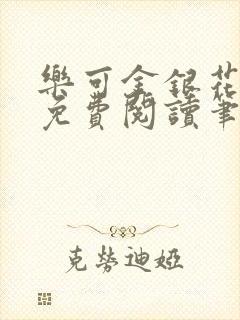 樂可金銀花
免費閱讀筆
克勞迪婭